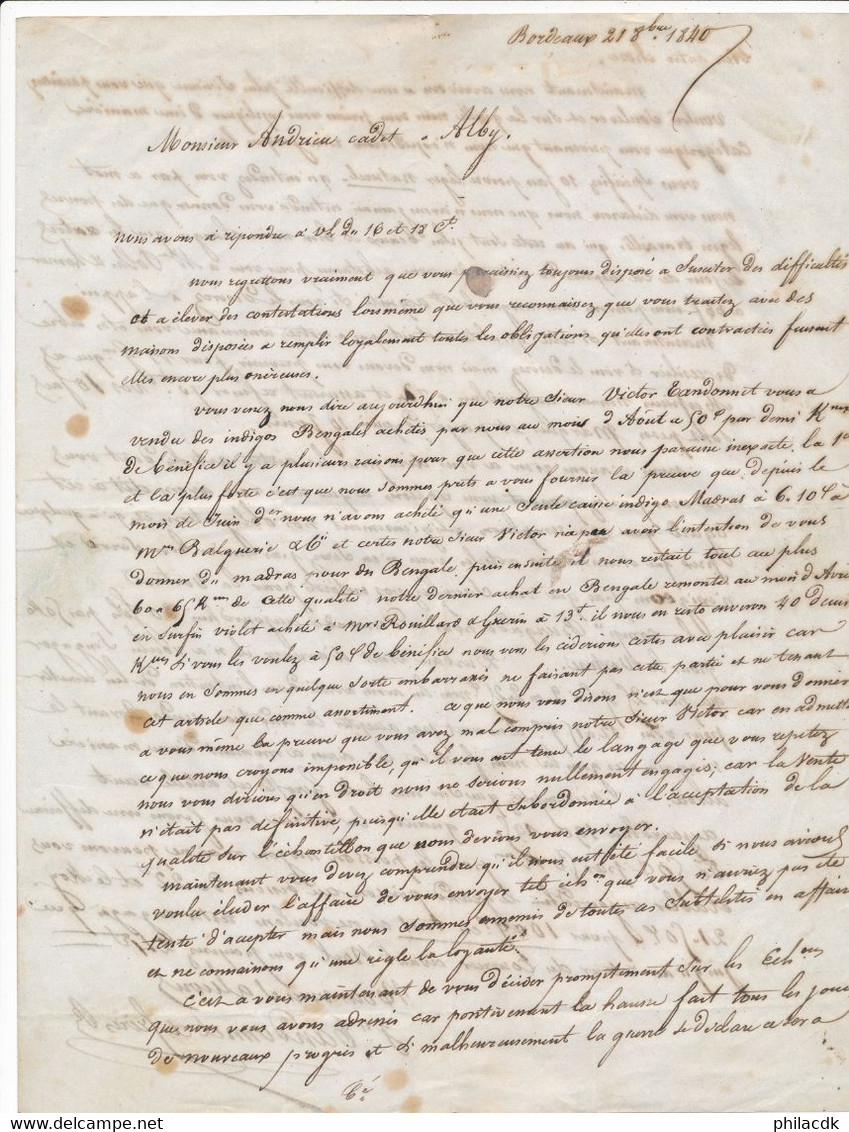 Bordeaux 21 8bre 1840
Monsieur Andrieu cadet a Alby.
nous avons à répondre à vL du 16 et 18 Ct.
nous regrettons vraiment que vous paraissiez toujours disposé a susciter des difficultés
et a élever des contestations lorsmême que vous reconnaissez que vous traitez avec des
maisons disposées a remplir loyalement toutes les obligations qu'elles ont contractées fussent
elles encore plus onéreuses.
vous venez nous dire aujourdhui que notre Sieur Victor Tandonnet vous a
vendu des indigos Bengales achetés par nous au mois d'Août a 50c par demi Kmes
de bénéfice il y a plusieurs raisons pour que cette assertion nous paraisse inexacte. la 1e
et la plus forte c'est que nous sommes prets a vous fournir la preuve que depuis le
mois de Juin der nous n'avons acheté qu'une seule caisse indigo Madras à 6.10c à
Mrs Balguerie & Cie et certes notre Sieur Victor n'a pu avoir l'intention de vous
donner du madras pour du Bengale. puis ensuite il nous restait tout au plus
60 a 65 Kmes de cette qualité notre dernier achat en Bengale remonte au mois d'Avril
en surfin violet acheté à Mrs Rouillard & Guerin à 13f. il nous en reste environ 40 demi
Kmes si vous les voulez à 50c de bénéfice nous vous les cèderions certes avec plaisir car
nous en sommes en quelque sorte embarrassés ne faisant pas cette partie et ne tenant
cet article que comme assortiment. ce que nous vous disons n'est que pour vous donner
a vous même la preuve que vous avez mal compris notre Sieur Victor car en admettant
ce que nous croyons impossible, qu'il vous eut tenu le langage que vous repetez
nous vous dirions qu'en droit nous ne serions nullement engagés; car la vente
n'était pas définitive, puisqu'elle etait subordonnée à l'acceptation de la
qualité sur l'échantillon que nous devions vous envoyer.
maintenant vous devez comprendre qu'il nous eut été facile si nous avions
voulu éluder l'affaire de vous envoyer tel échon que vous n'auriez pas été
tenté d'accepter mais nous sommes ennemis de toutes ces subtilités en affaires
et ne connaissons qu'une règle la loyauté.
c'est a vous maintenant de vous décider promptement sur les Echons
que nous vous avons adressés car positivement la hausse fait tous les jours
de nouveaux progrès et si malheureusement la guerre se declare ce sera
philacdk